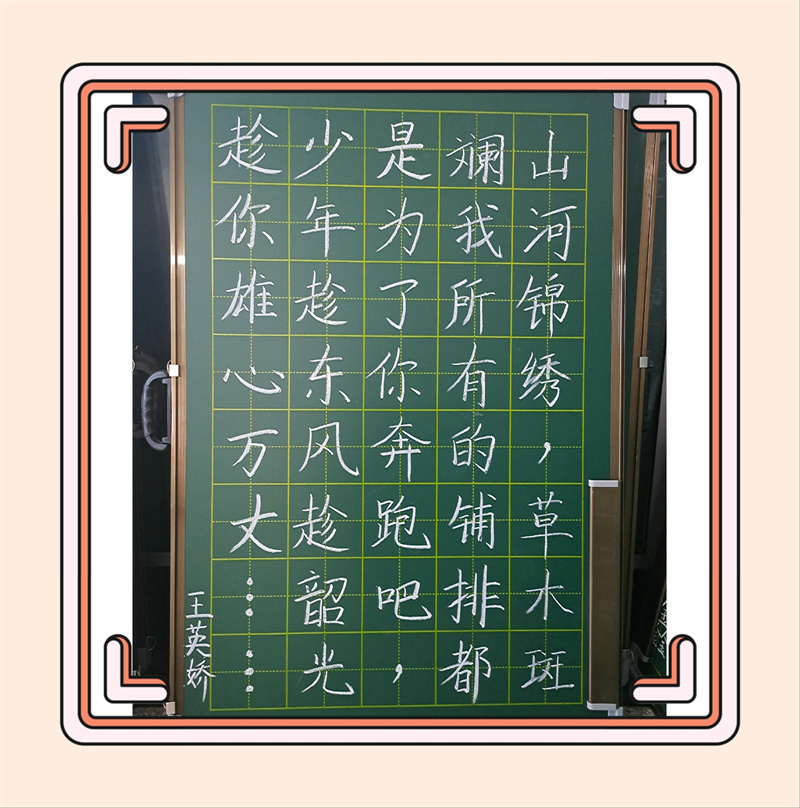 山河锦绣，草木斑
斓我所有的铺排都
是为了你奔跑吧，
少年趁东风趁韶光
趁你雄心万丈……
王英娇